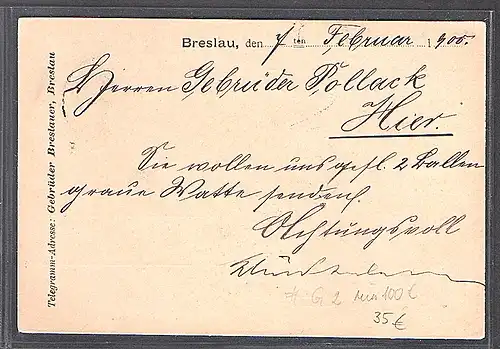 Breslau, den 7ten Februar 1900.
Herren Gebrüder Pollack
Hier.
Sie wollen uns gefl. 2 Ballen
graue Watte senden.
Achtungsvoll
G 2 100 €
35 €
Telegramm-Adresse: Gebrüder Breslauer, Breslau